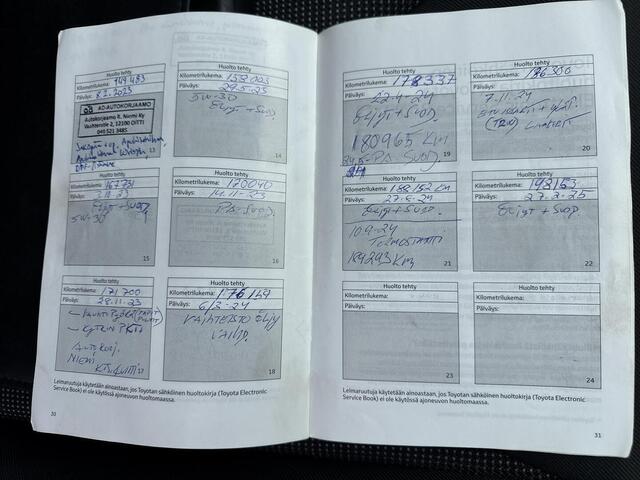 Huolto tehty
Kilometrilukema: 149.483
Päiväys: 8.2.2023
AD-AUTOKORJAAMO
Autokorjaamo R. Niemi Ky
Vanhatie 2, 12100 OITTI
040 521 3485
13
Huolto tehty
Kilometrilukema: 158003
Päiväys: 29.5-23
5W-30
Öljyt + Suod.
14
Huolto tehty
Kilometrilukema: 167731
Päiväys:
Öljyt + Suod
5W-30
15
Huolto tehty
Kilometrilukema: 170040
Päiväys: 14.11-23
PA-Suod.
16
Huolto tehty
Kilometrilukema: 171700
Päiväys: 28.11-23
Autokorj.
Niemi
17
Huolto tehty
Kilometrilukema: 176159
Päiväys: 6/3-24
Vaihteisto Öljy
Vaihd.
18
Leimaruutuja käytetään ainoastaan, jos Toyotan sähköinen huoltokirja (Toyota Electronic
Service Book) ei ole käytössä ajoneuvon huoltomaassa.
30
Huolto tehty
Kilometrilukema: 178337
Päiväys: 22-4-24
Öljyt + Suod
180965 Km
PA Suod.
19
Huolto tehty
Kilometrilukema: 186300
Päiväys: 7.11-24
20
Huolto tehty
Kilometrilukema: 188152 Km
Päiväys: 27-8-24
Öljyt + Suod.
10.9-24
Termostaatti
184293 Km
21
Huolto tehty
Kilometrilukema: 193153
Päiväys: 27.2-25
Öljyt + Suod.
22
Huolto tehty
Kilometrilukema:
Päiväys:
23
Huolto tehty
Kilometrilukema:
Päiväys:
24
Leimaruutuja käytetään ainoastaan, jos Toyotan sähköinen huoltokirja (Toyota Electronic
Service Book) ei ole käytössä ajoneuvon huoltomaassa.
31